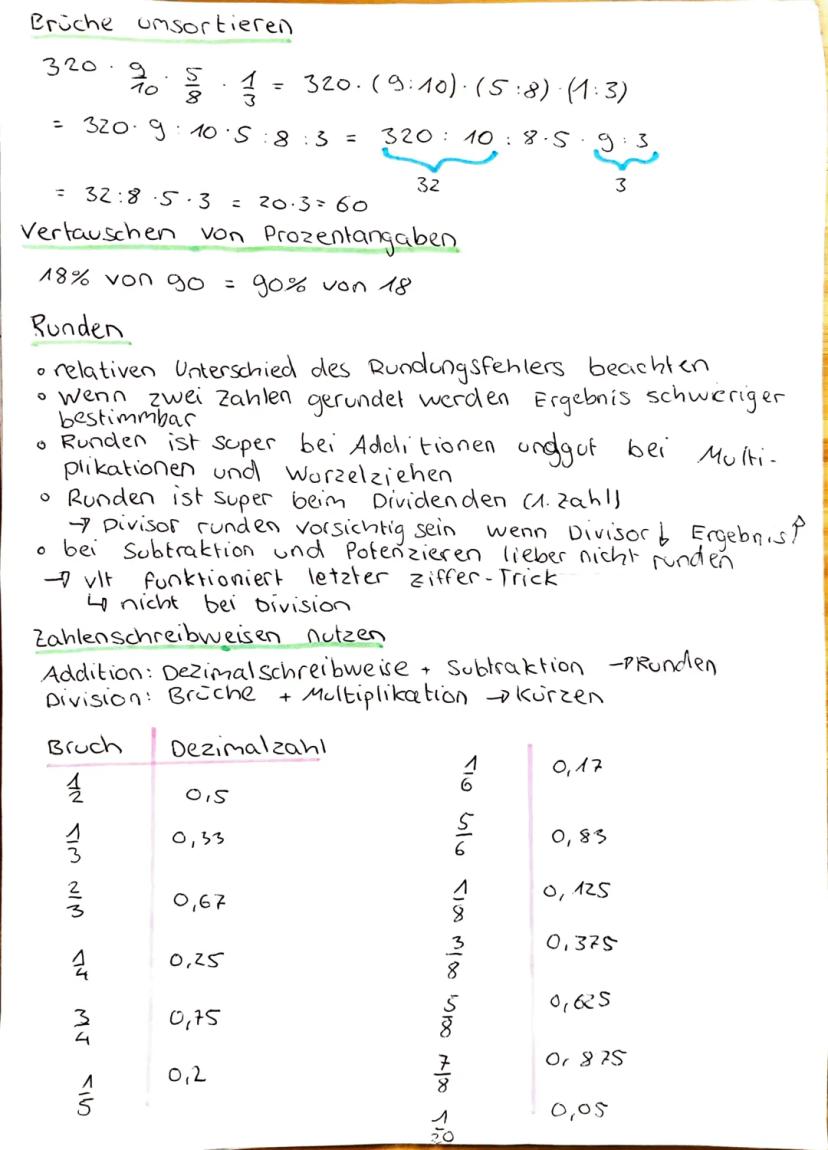 Brüche umsortieren
320 · 9/10 · 5/8 · 1/3 = 320 · (9:10) · (5:8) · (1:3)
= 320 · 9 : 10 · 5 : 8 : 3 = 320 : 10 : 8 · 5 · 9 : 3
32 3
= 32:8 · 5 · 3 = 20·3 = 60
Vertauschen von Prozentangaben
18% von 90 = 90% von 18
Runden
° relativen Unterschied des Rundungsfehlers beachten
° Wenn zwei Zahlen gerundet werden Ergebnis schwieriger
bestimmbar
° Runden ist super bei Additionen und gut bei Multi-
plikationen und Wurzelziehen
° Runden ist super beim Dividenden (1. Zahl)
→ Divisor runden vorsichtig sein wenn Divisor ↓ Ergebnis ↑
° bei Subtraktion und Potenzieren lieber nicht runden
→ vlt funktioniert letzter Ziffer-Trick
↳ nicht bei Division
Zahlenschreibweisen nutzen
Addition: Dezimalschreibweise + Subtraktion → Runden
Division: Brüche + Multiplikation → Kürzen
Bruch Dezimalzahl
1/2 0,5
1/3 0,33
2/3 0,67
1/4 0,25
3/4 0,75
1/5 0,2
1/6 0,17
5/6 0,83
1/8 0,125
3/8 0,375
5/8 0,625
7/8 0,875
1/20 0,05